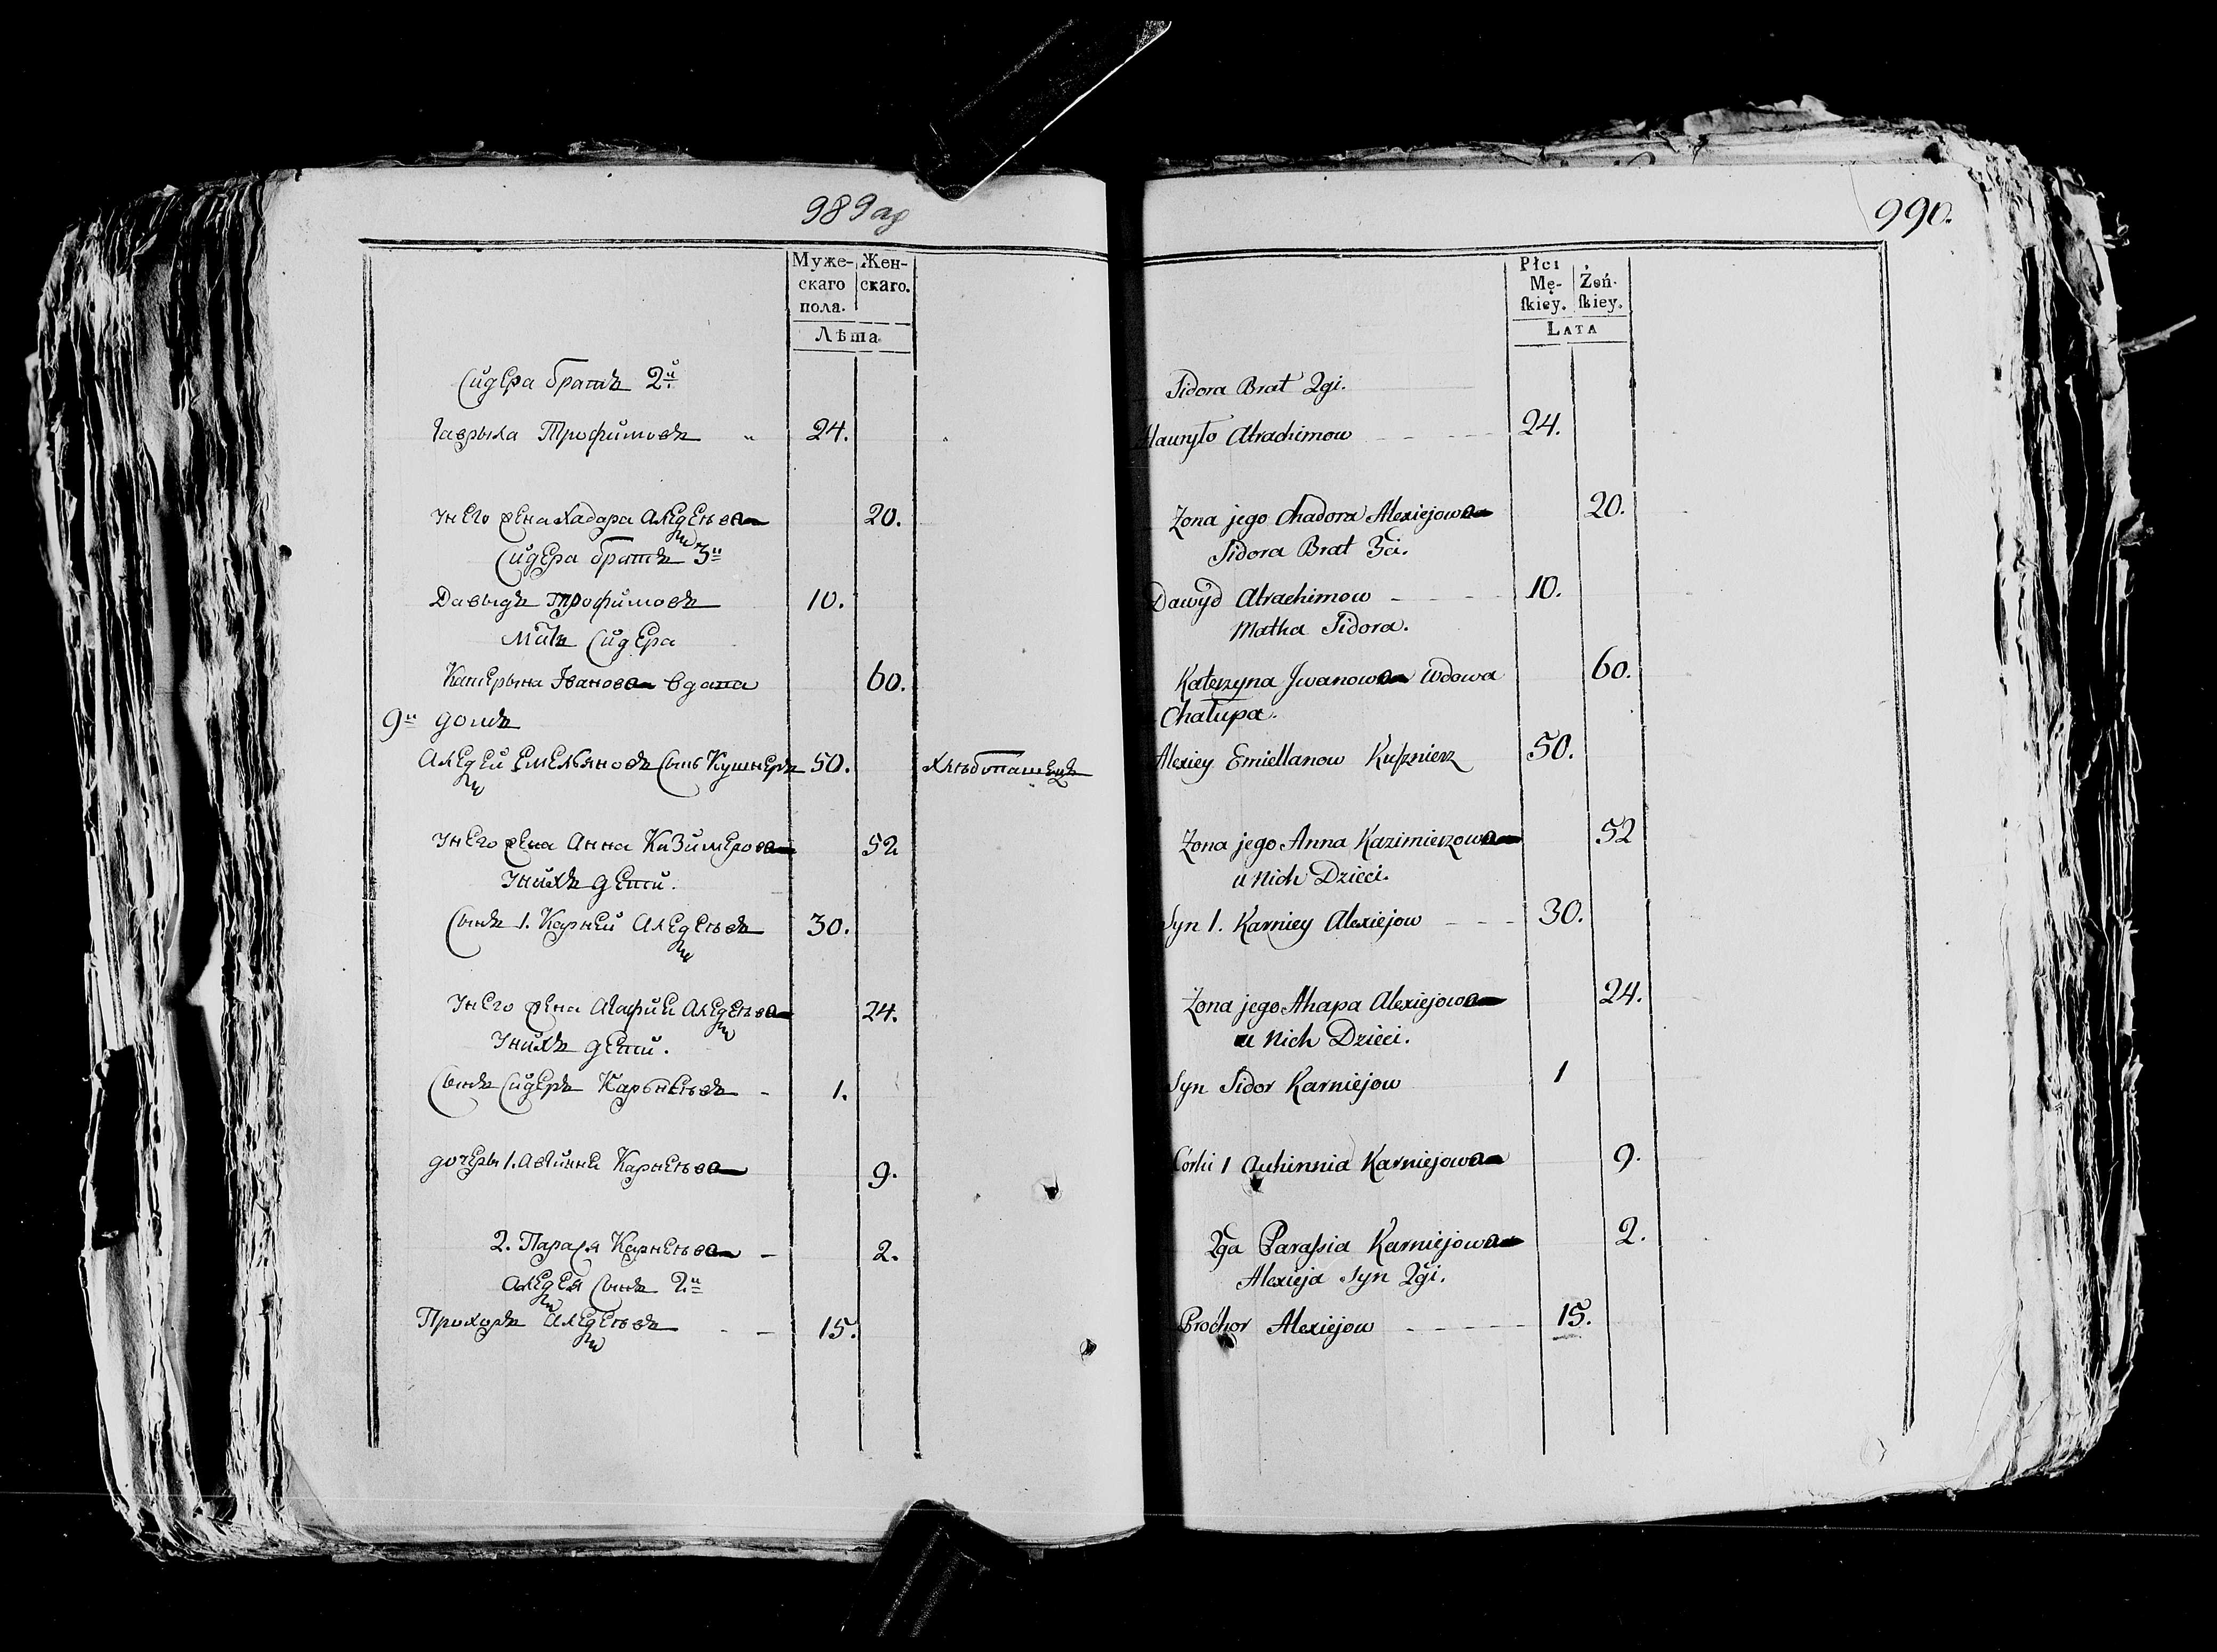 989 ад
Муже-
скаго
пола.
Жен-
скаго.
Лѣта
Сидера братъ 2й
Гаврыла Трофимовъ 24.
У него жена Хадора Алеѯеева 20.
Сидера братъ 3й
Давыдъ Трофимовъ 10.
Мать Сидера
Катерына Іванова вдова 60.
9й домъ
Алеѯей Емельяновъ сынъ Кушнеръ 50. Хлѣбопашецъ
У него жена Анна Казимерова 52
У нихъ дети.
Сынъ 1. Карней Алеѯеевъ 30.
У него жена Агафия Алеѯеева 24.
У нихъ дети.
Сынъ Сидеръ Карнеевъ - 1.
дочеры 1. Авгиння Карнеева 9.
2. Парася Карнеева - 2.
Алеѯея сынъ 2й
Прохоръ Алеѯеевъ - - 15.
990.
Płci
Mę-
ſkiey.
Żeń-
ſkiey.
LATA
Sidora Brat 2gi.
Hauryło Atrachimow 24.
Zona jego Chadora Alexiejowa 20.
Sidora Brat 3ci.
Dawyd Atrachimow 10.
Matka Sidora.
Katerzyna Jwanowa Wdowa 60.
Chałupa.
Alexiey Emiellanow Kuſznierz 50.
Zona jego Anna Kazimierzowa 52
u Nich Dzieci.
Syn 1. Karniey Alexiejow 30.
Zona jego Ahapa Alexiejowa 24.
u Nich Dzieci.
Syn Sidor Karniejow 1
Corki 1 Auhinnia Karniejowa 9.
2ga Paraſsia Karniejowa 2.
Alexieja Syn 2gi.
Prochor Alexiejow 15.